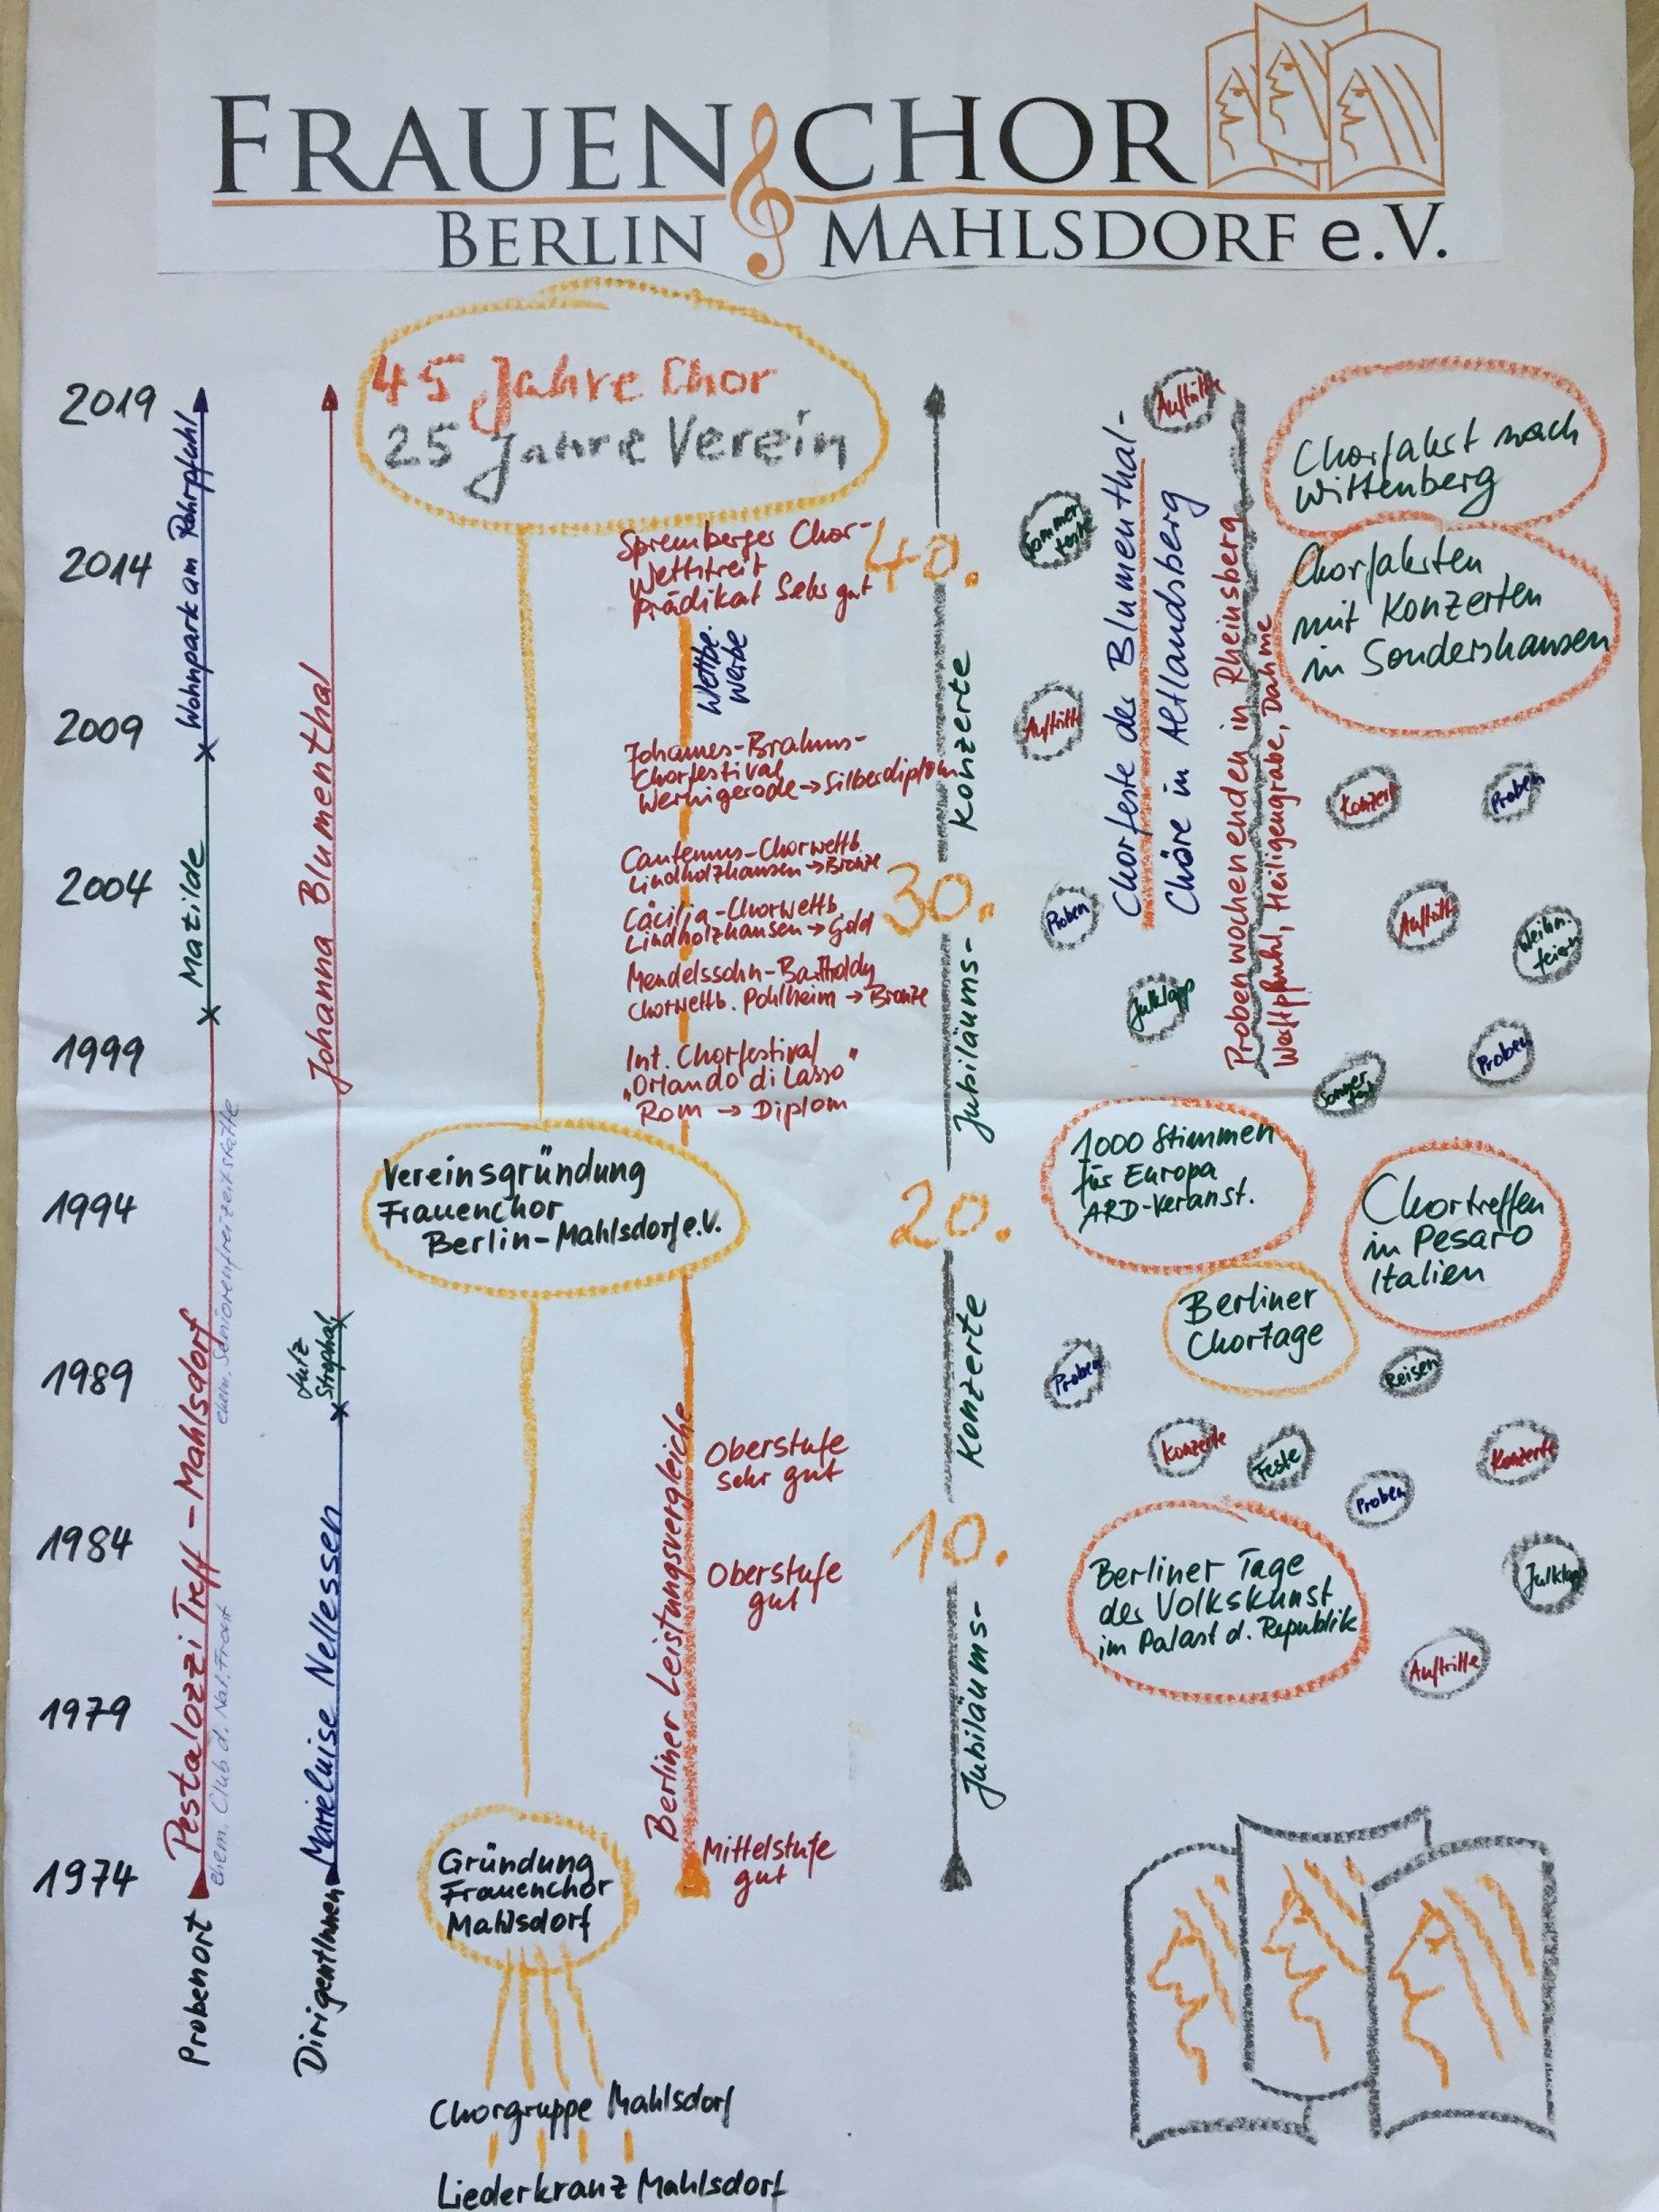 FRAUENCHOR
BERLIN MAHLSDORF e.V.
45 Jahre Chor
25 Jahre Verein
2019
2014
2009
2004
1999
1994
1989
1984
1979
1974
Probenort
Pestalozzi Treff - Mahlsdorf
ehem. Club d. Nat. Front
ehem. Seniorenfreizeitstätte
Matilde
Wohnpark am Rohrpfuhl
DirigentInnen
Marieluise Nellessen
Lutz
Strophal
Johanna Blumenthal
Spremberger Chor-
Wettstreit
Prädikat Sehr gut
Wettbe-
werbe
Johannes-Brahms-
Chorfestival
Wernigerode → Silberdiplom
Chorwettb.
Lindholzhausen → Bronze
Cäcilia-Chorwettb.
Lindholzhausen → Gold
Mendelssohn-Bartholdy
Chorwettb. Pohlheim → Bronze
Int. Chorfestival
„Orlando di Lasso"
Rom → Diplom
Vereinsgründung
Frauenchor
Berlin-Mahlsdorf e.V.
Berliner Leistungsvergleiche
Oberstufe
sehr gut
Oberstufe
gut
Mittelstufe
gut
Gründung
Frauenchor
Mahlsdorf
Chorgruppe Mahlsdorf
Liederkranz Mahlsdorf
40.
30.
20.
10.
Jubiläums- Konzerte
Jubiläums- Konzerte
Auftritte
Sommer
feste
Auftritte
Proben
Julklapp
Chorfeste der Blumenthal-
Chöre in Altlandsberg
Probenwochenenden in Rheinsberg
Werftpfuhl, Heiligengrabe, Dahme
Chorfahrt nach
Wittenberg
Chorfahrten
mit Konzerten
in Sondershausen
Konzert
Proben
Auftritt
Weihn.
feiern
Proben
Sommer
fest
1000 Stimmen
für Europa
ARD-Veranst.
Chortreffen
in Pesaro
Italien
Berliner
Chortage
Proben
Reisen
Konzerte
Feste
Konzerte
Proben
Berliner Tage
der Volkskunst
im Palast d. Republik
Julklapp
Auftritte